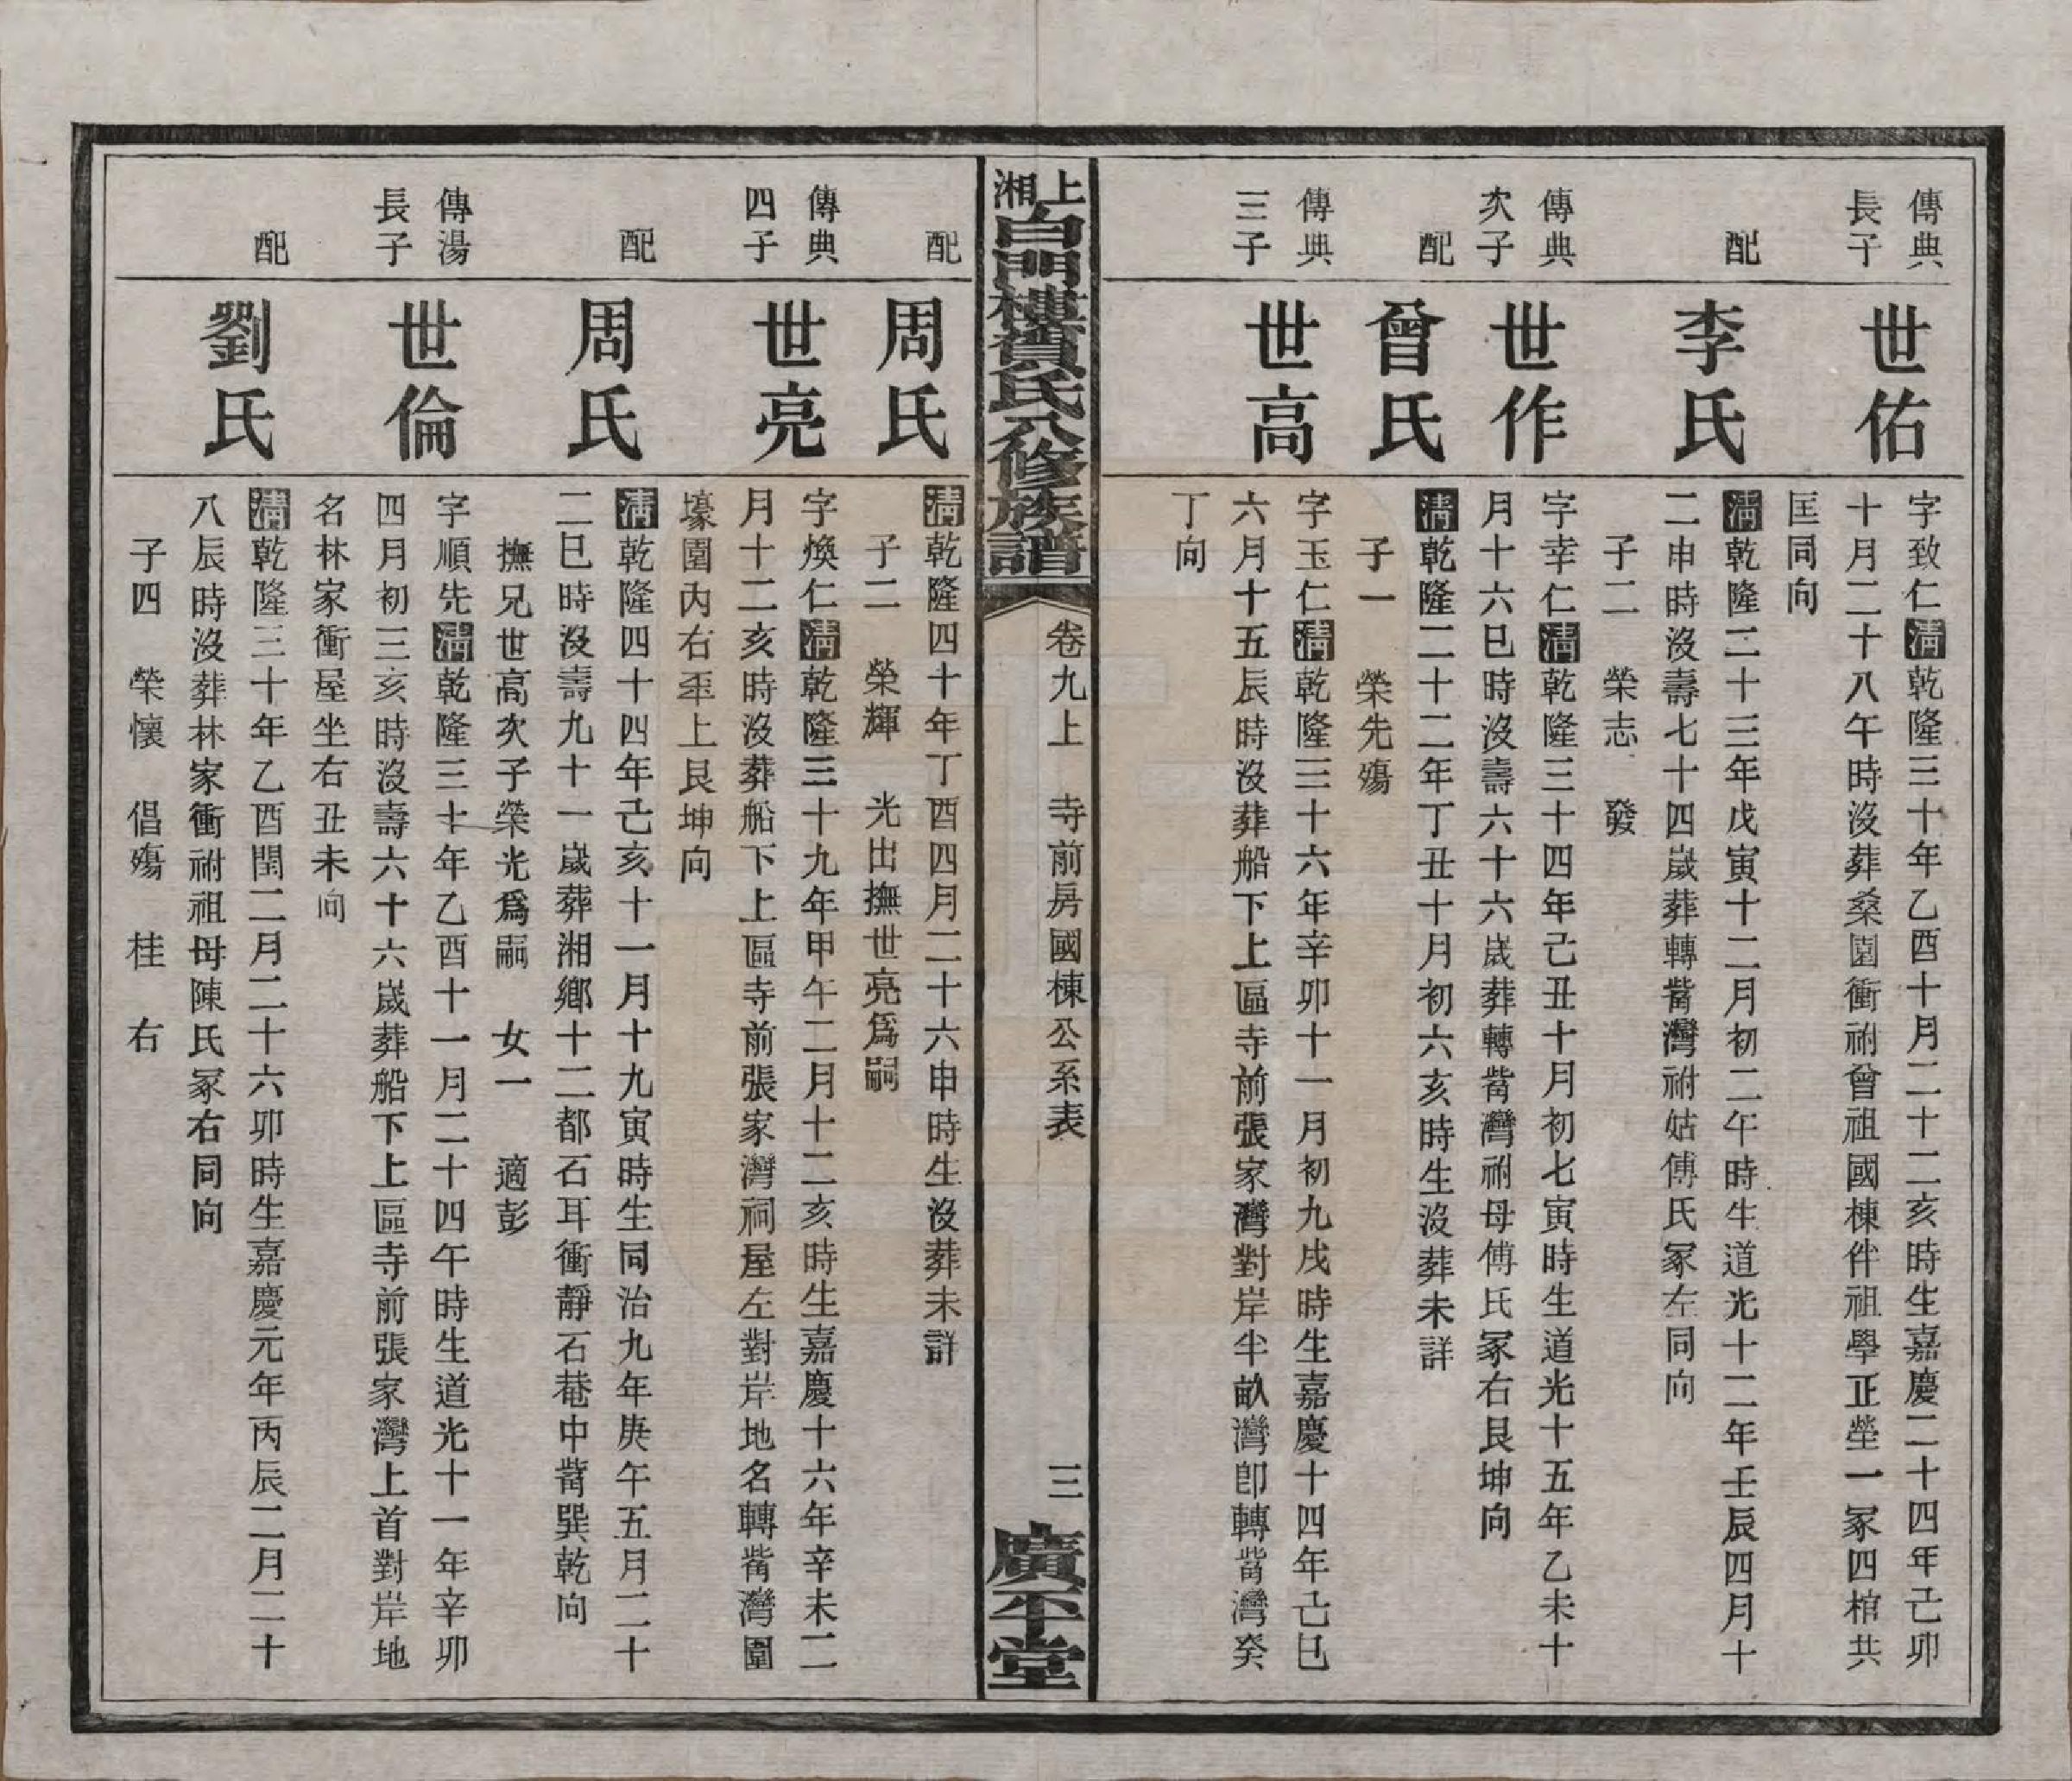 傳典長子
世佑
字致仁清乾隆三十年乙酉十月二十二亥時生嘉慶二十四年己卯
十月二十八午時沒葬桑園衝祔曾祖國棟伴祖學正塋一冢四棺共
匡同向
配
李氏
清乾隆二十三年戊寅十二月初二午時生道光十二年壬辰四月十
二申時沒壽七十四歲葬轉觜灣祔姑傅氏冢左同向
子二 榮志 發
傳典次子
世作
字幸仁清乾隆三十四年己丑十月初七寅時生道光十五年乙未十
月十六巳時沒壽六十六歲葬轉觜灣祔母傅氏冢右艮坤向
配
曾氏
清乾隆二十二年丁丑十月初六亥時生沒葬未詳
子一 榮先殤
傳典三子
世高
字玉仁清乾隆三十六年辛卯十一月初九戌時生嘉慶十四年己巳
六月十五辰時沒葬船下上區寺前張家灣對岸半畝灣卽轉觜灣癸
丁向
上湘白門樓賀氏八修族譜
卷九上 寺前房國棟公系表
三
廣平堂
配
周氏
清乾隆四十年丁酉四月二十六申時生沒葬未詳
子二 榮輝 光出撫世亮爲嗣
傳典四子
世亮
字煥仁清乾隆三十九年甲午二月十二亥時生嘉慶十六年辛未二
月十二亥時沒葬船下上區寺前張家灣祠屋左對岸地名轉觜灣圍
壕圍內右坯上艮坤向
配
周氏
清乾隆四十四年己亥十一月十九寅時生同治九年庚午五月二十
二巳時沒壽九十一歲葬湘鄉十二都石耳衝靜石菴中觜巽乾向
撫兄世高次子榮光爲嗣 女一 適彭
傳湯長子
世倫
字順先清乾隆三十年乙酉十一月二十四午時生道光十一年辛卯
四月初三亥時沒壽六十六歲葬船下上區寺前張家灣上首對岸地
名林家衝屋坐右丑未向
配
劉氏
清乾隆三十年乙酉閏二月二十六卯時生嘉慶元年丙辰二月二十
八辰時沒葬林家衝祔祖母陳氏冢右同向
子四 榮懷 倡殤 桂 右